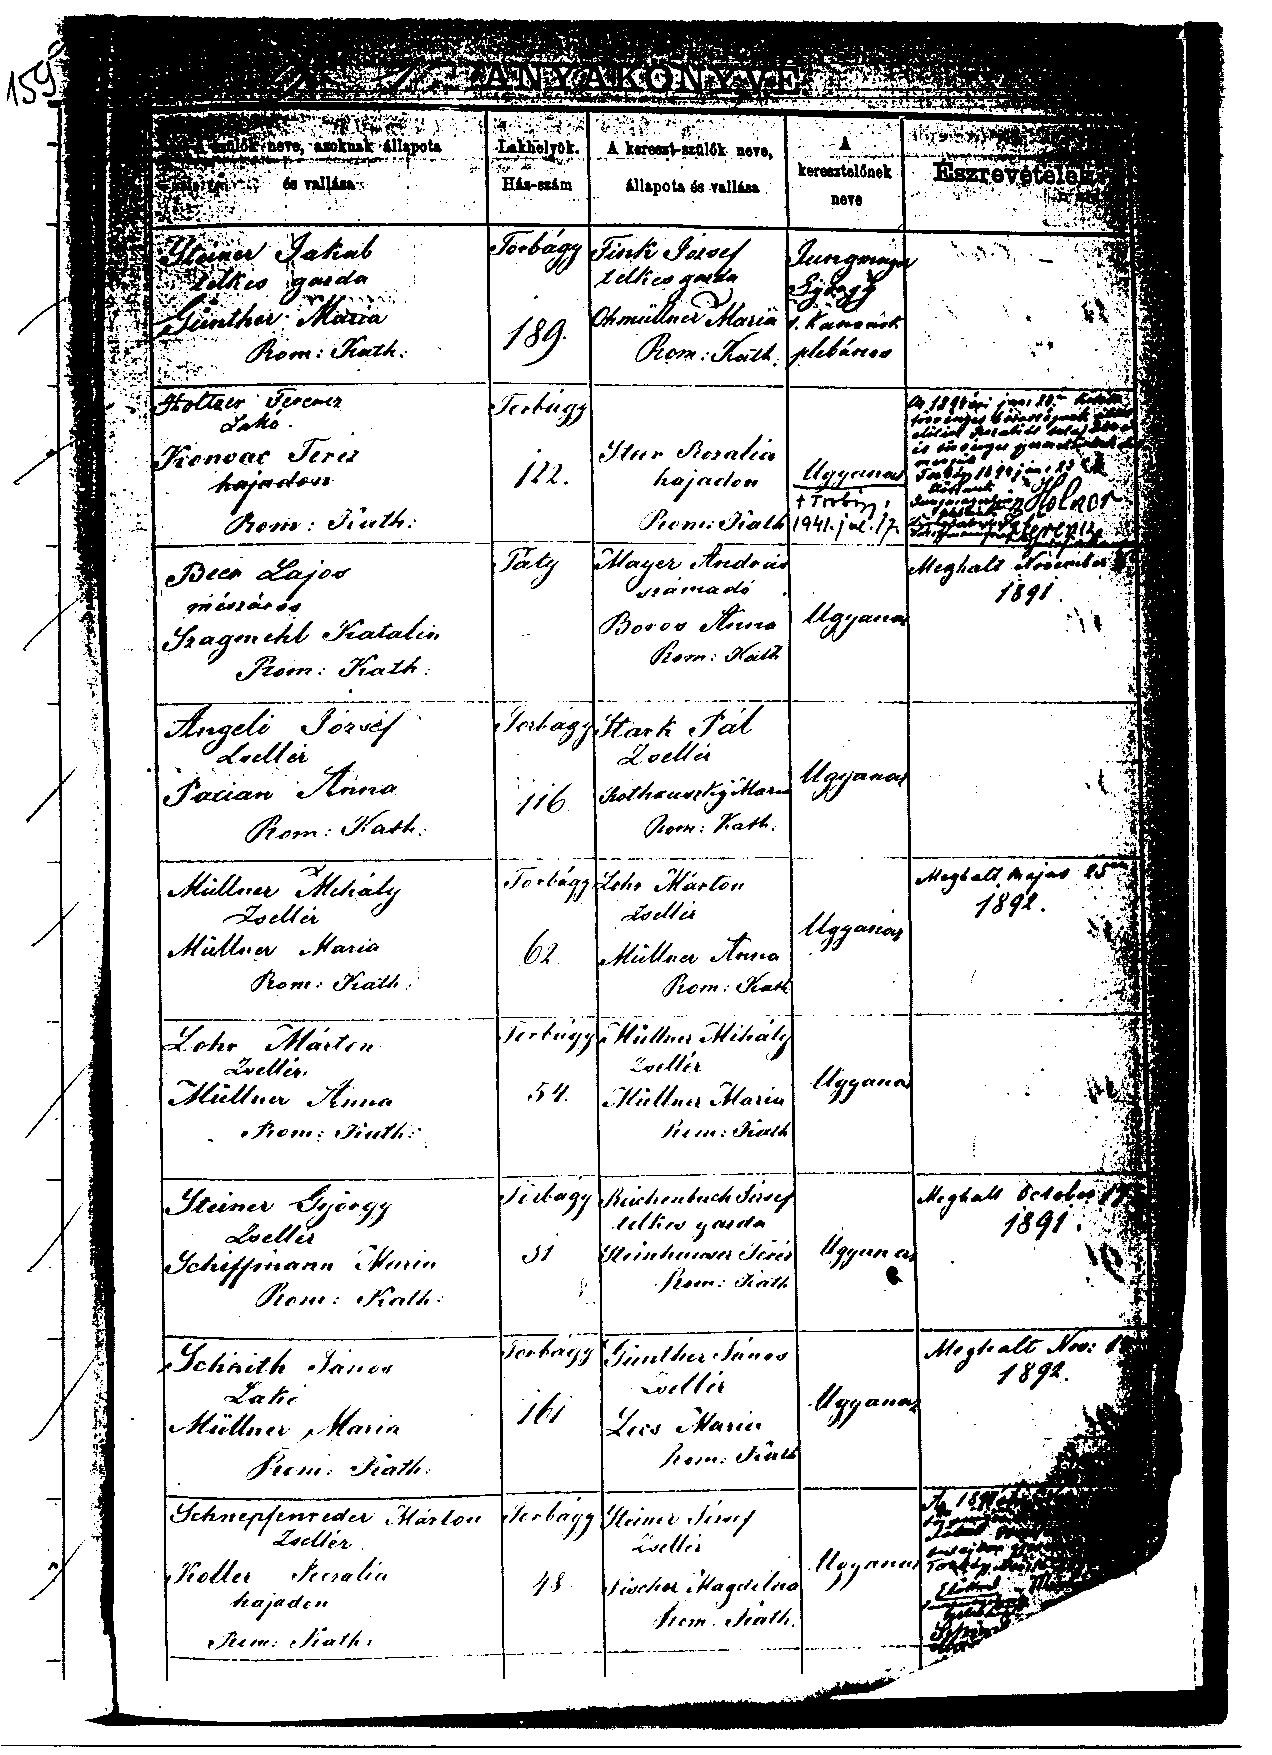 159
ANYAKÖNYVE
A szülők neve, azoknak állapota
és vallása
Lakhelyök.
Ház-szám
A kereszt-szülők neve,
állapota és vallása
A
keresztelőnek
neve
Észrevételek
Steiner Jakab
telkes gazda
Günther Maria
Rom: Kath:
Torbágy
189.
Fink József
telkes gazda
Ohmüllner Maria
Rom: Kath.
Jungmayer
György
t. Kanonok
plebános
Holtzer Ferencz
Lakó.
Konvac Teréz
hajadon
Rom: Kath:
Torbágy
122.
Stur Rosalia
hajadon
Rom: Kath
Ugyanaz
† Torbágy,
1941. júl. 17.
Holner
Ferencz
Beer Lajos
mészáros
Szagmehl Katalin
Rom: Kath:
Páty
Mayer András
számadó
Boros Anna
Rom: Kath
Ugyanaz
Meghalt November
1891.
Angeli József
Zsellér
Pacian Anna
Rom: Kath:
Torbágy
116
Stark Pál
Zsellér
Rothauszky Maria
Rom: Kath.
Ugyanaz
Müllner Mihály
Zsellér
Müllner Maria
Rom: Kath
Torbágy
62
Lohr Márton
Zsellér
Müllner Anna
Rom: Kath
Ugyanaz
Meghalt Május 25
1892.
Lohr Márton
Zsellér.
Müllner Anna
Rom: Kath:
Torbágy
54.
Müllner Mihály
Zsellér
Müllner Maria
Rom: Kath
Ugyanaz
Steiner György
Zsellér
Schiffmann Maria
Rom: Kath:
Torbágy
31
Reichenbach József
telkes gazda
Steinhauser Teréz
Rom: Kath
Ugyanaz
Meghalt October 17
1891.
Schäith János
Lakó
Müllner Maria
Rom: Kath:
Torbágy
161
Günther János
Zsellér
Lecs Maria
Rom: Kath
Ugyanaz
Meghalt Nov:
1892.
Schnepfenreder Márton
Zsellér
Koller Rosalia
hajadon
Rom: Kath:
Torbágy
48
Steiner József
Zsellér
Fischer Magdolna
Rom. Kath.
Ugyanaz